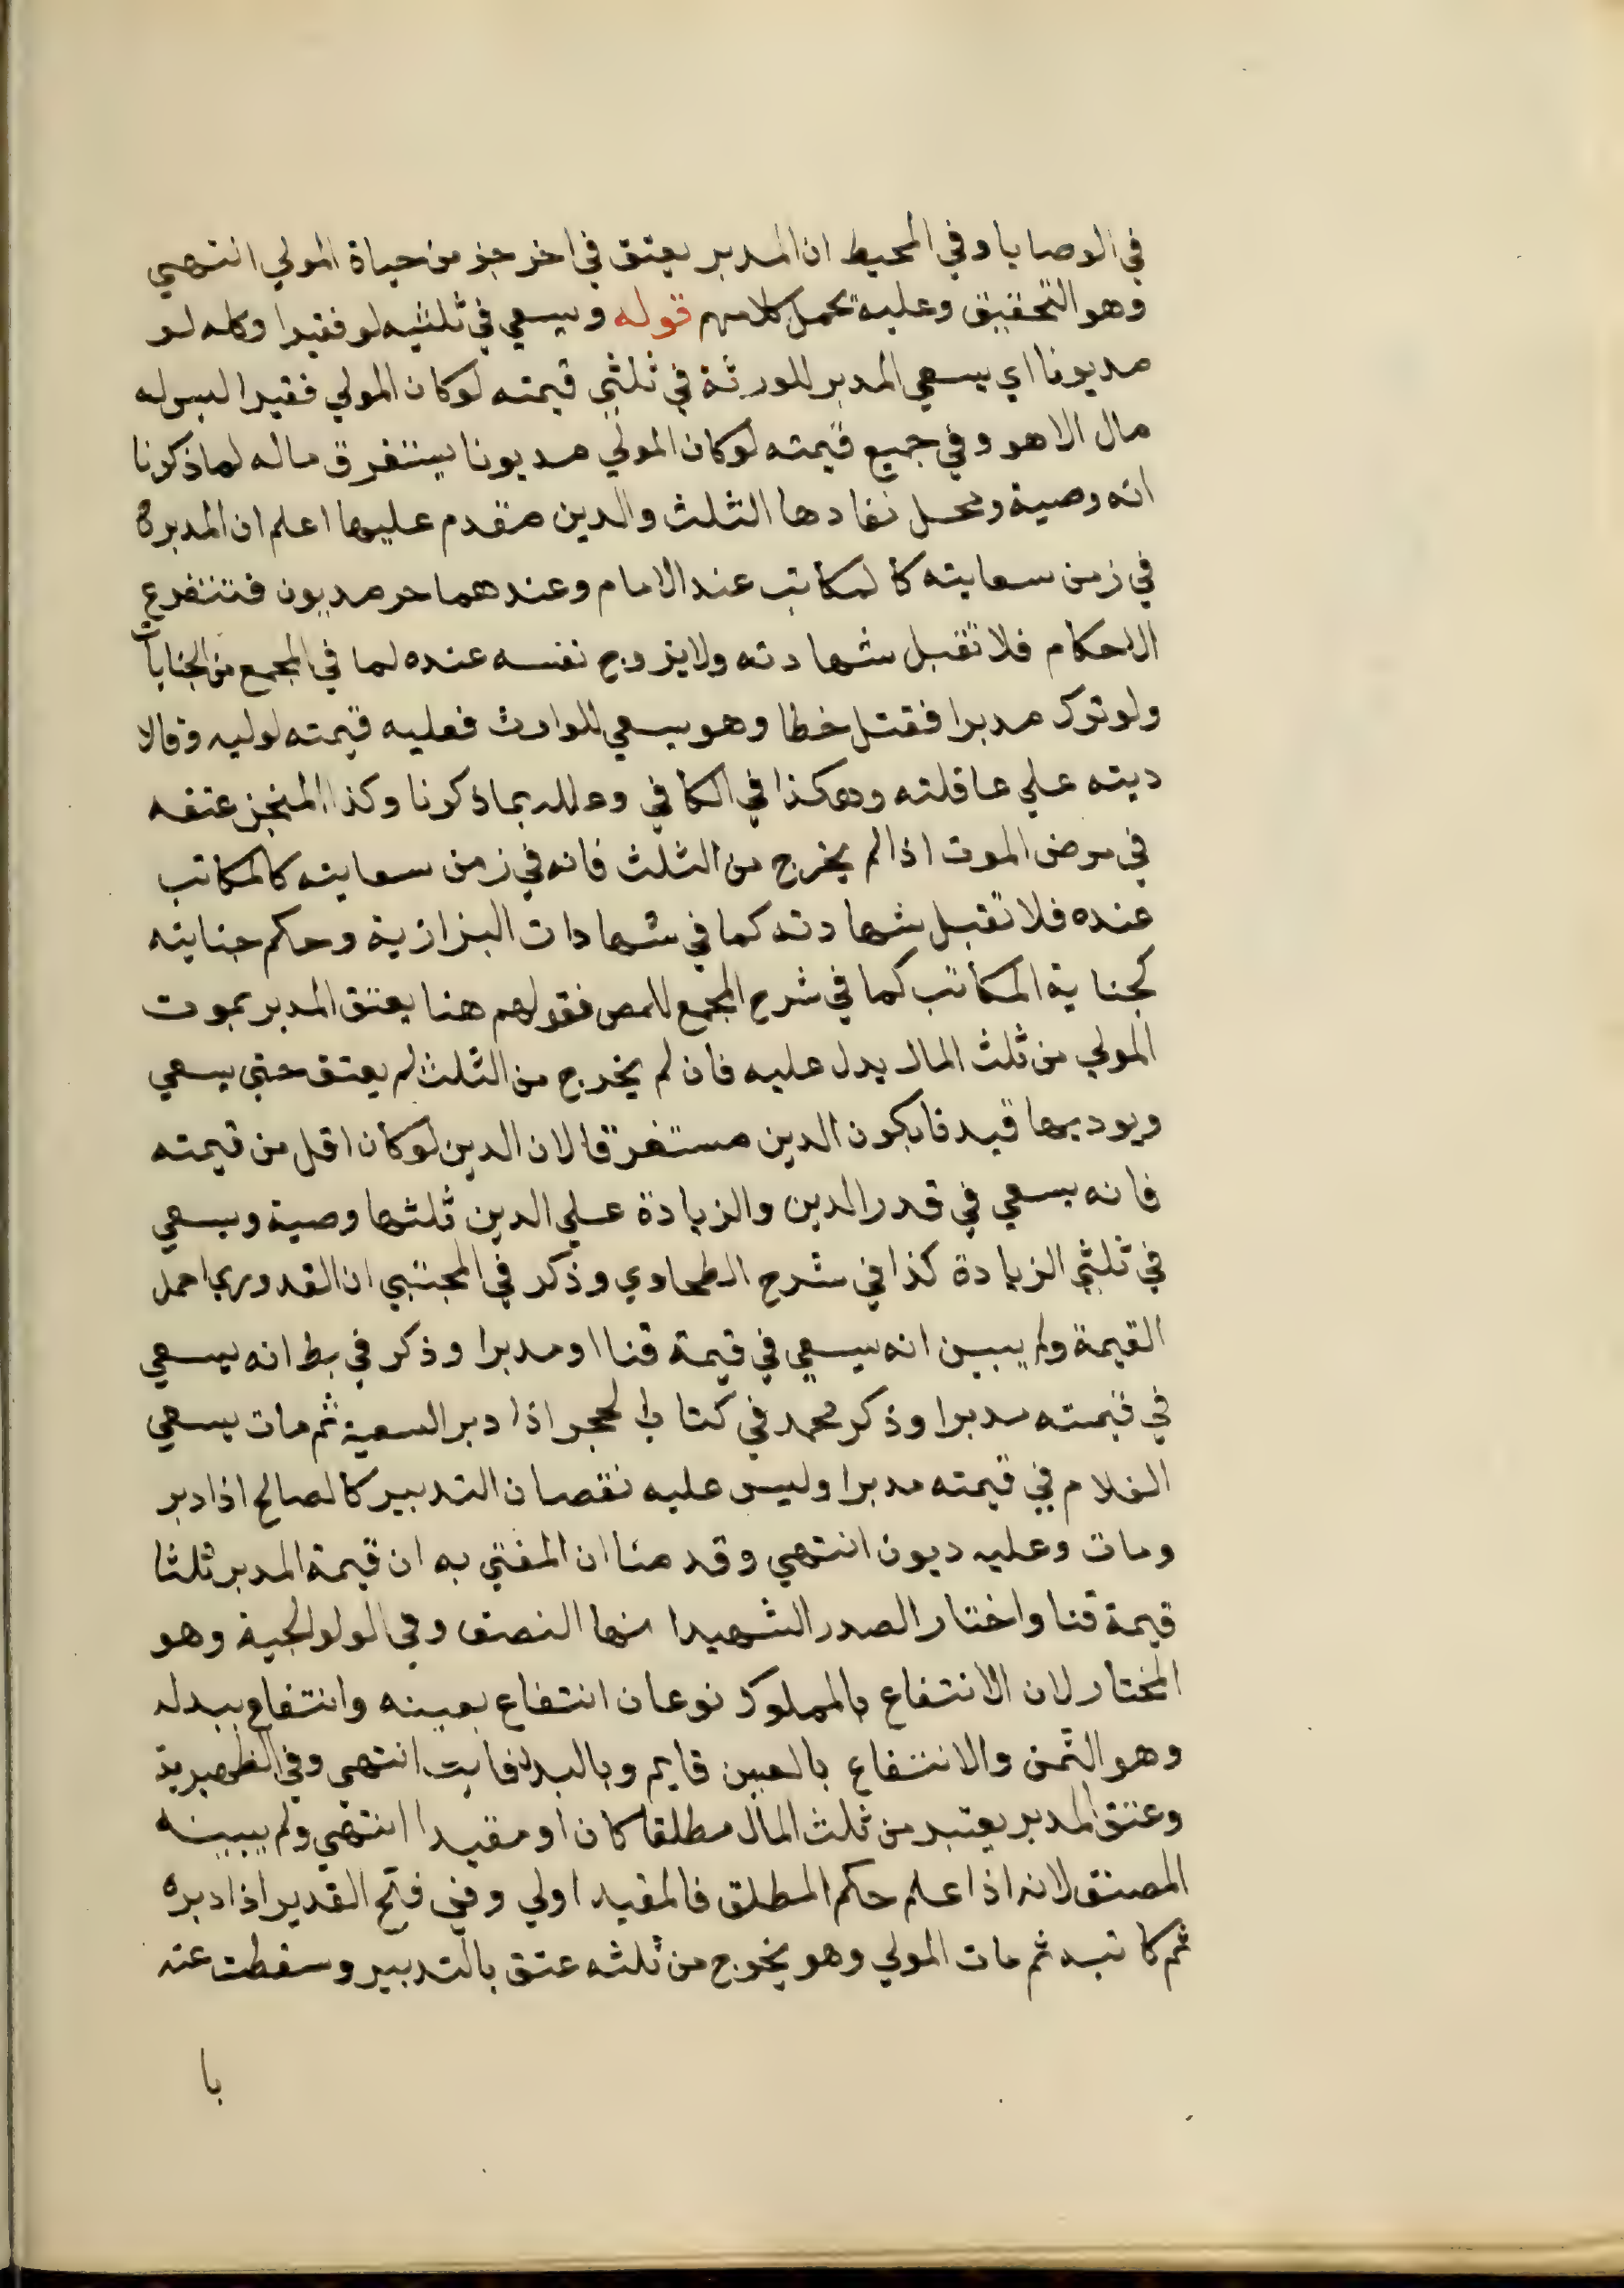 في الوصايا وفي المحيط ان المدبر يعتق في اخر جز من حياة المولي انتهي
وهو التحقيق وعليه يحمل كلامهم قوله ويسعي في ثلثيه لو فقيرا وكله لو
مديونا اي يسعي المدبر للورثة في ثلثي قيمته لو كان المولي فقيرا ليس له
مال الا هو وفي جميع قيمته لو كان المولي مديونا يستغرق ماله لما ذكرنا
انه وصية ومحل نفادها الثلث والدين مقدم عليها اعلم ان المدبر
في زمن سعايته كالمكاتب عند الامام وعندهما حر مديون فتتفرع
الاحكام فلا تقبل شهادته ولا يزوج نفسه عنده لما في المجمع من الجنايات
ولو ترك مدبرا فقتل خطا وهو يسعي للوارث فعليه قيمته لوليه وقالا
ديته علي عاقلته وهكذا في الكافي وعلله بما ذكرنا وكذا المنجز عتقه
في مرض الموت اذا لم يخرج من الثلث فانه في زمن سعايته كالمكاتب
عنده فلا تقبل شهادته كما في شهادات البزازية وحكم جنايته
كجناية المكاتب كما في شرح المجمع للمص فقولهم هنا يعتق المدبر بموت
المولي من ثلث المال يدل عليه فان لم يخرج من الثلث لم يعتق حتي يسعي
ويوديها قيدنا بكون الدين مستغرقا لان الدين لو كان اقل من قيمته
فانه يسعي في قدر الدين والزيادة علي الدين ثلثها وصية ويسعي
في ثلثي الزيادة كذا في شرح الطحاوي وذكر في المجتبي ان القدوري اهمل
القيمة ولم يبين انه يسعي في قيمة قنا او مدبرا وذكر في بط انه يسعي
في قيمته مدبرا وذكر محمد في كتاب الحجر اذا دبر السفيه ثم مات يسعي
الغلام في قيمته مدبرا وليس عليه نقصان التدبير كالصالح اذا دبر
ومات وعليه ديون انتهي وقدمنا ان المفتي به ان قيمة المدبر ثلثا
قيمة قنا واختار الصدر الشهيد انها النصف وفي الولوالجية وهو
المختار لان الانتفاع بالمملوك نوعان انتفاع بعينه وانتفاع ببدله
وهو الثمن والانتفاع بالعين قايم وبالبدل فايت انتهي وفي الظهيرية
وعتق المدبر يعتبر من ثلث المال مطلقا كان او مقيدا انتهي ولم يبينه
المصنف لانه اذا علم حكم المطلق فالمقيد اولي وفي فتح القدير اذا دبره
ثم كاتبه ثم مات المولي وهو يخرج من ثلثه عتق بالتدبير وسقطت عنه
با